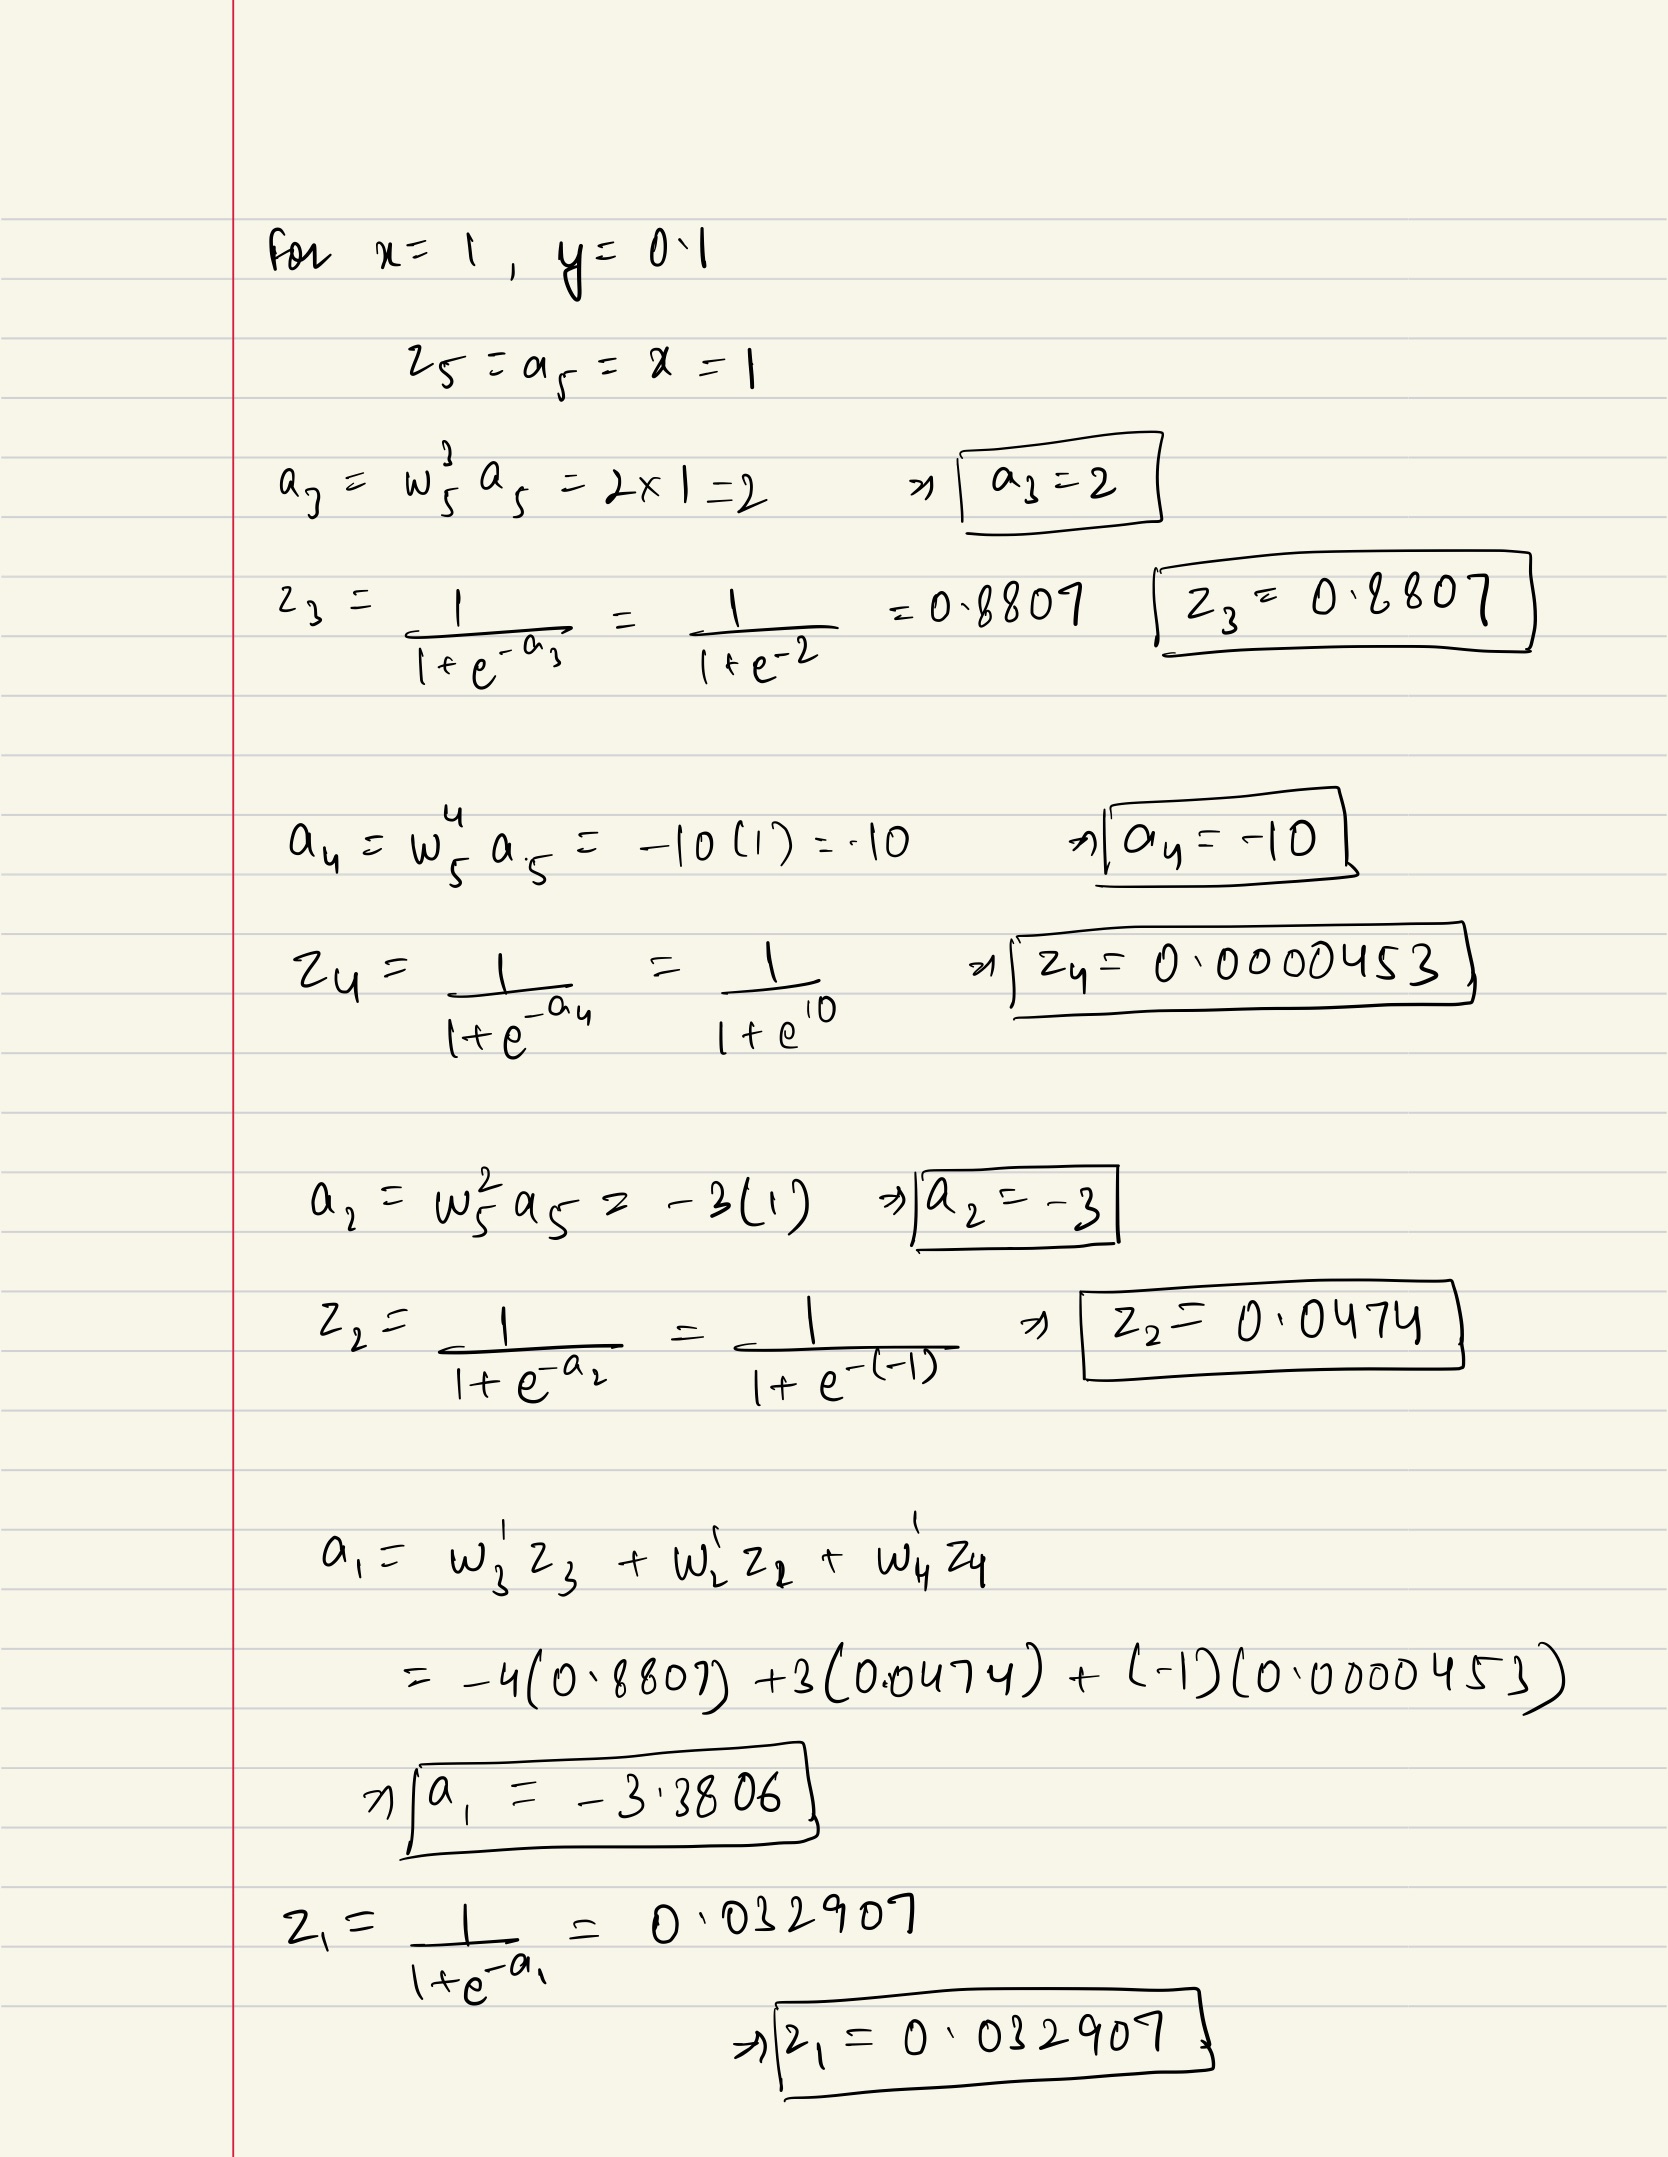 For x = 1 , y = 0.1
z₅ = a₅ = x = 1
a₃ = w₅³ a₅ = 2 × 1 = 2 ⇒ a₃ = 2
z₃ = 1/(1 + e^(-a₃)) = 1/(1 + e^(-2)) = 0.8807 z₃ = 0.8807
a₄ = w₅⁴ a₅ = -10 (1) = -10 ⇒ a₄ = -10
z₄ = 1/(1 + e^(-a₄)) = 1/(1 + e^(10)) ⇒ z₄ = 0.0000453
a₂ = w₅² a₅ = -3(1) ⇒ a₂ = -3
z₂ = 1/(1 + e^(-a₂)) = 1/(1 + e^(-(-1))) ⇒ z₂ = 0.0474
a₁ = w₃¹ z₃ + w₂¹ z₂ + w₄¹ z₄
= -4(0.8807) + 3(0.0474) + (-1)(0.0000453)
⇒ a₁ = -3.3806
z₁ = 1/(1 + e^(-a₁)) = 0.032907
⇒ z₁ = 0.032907